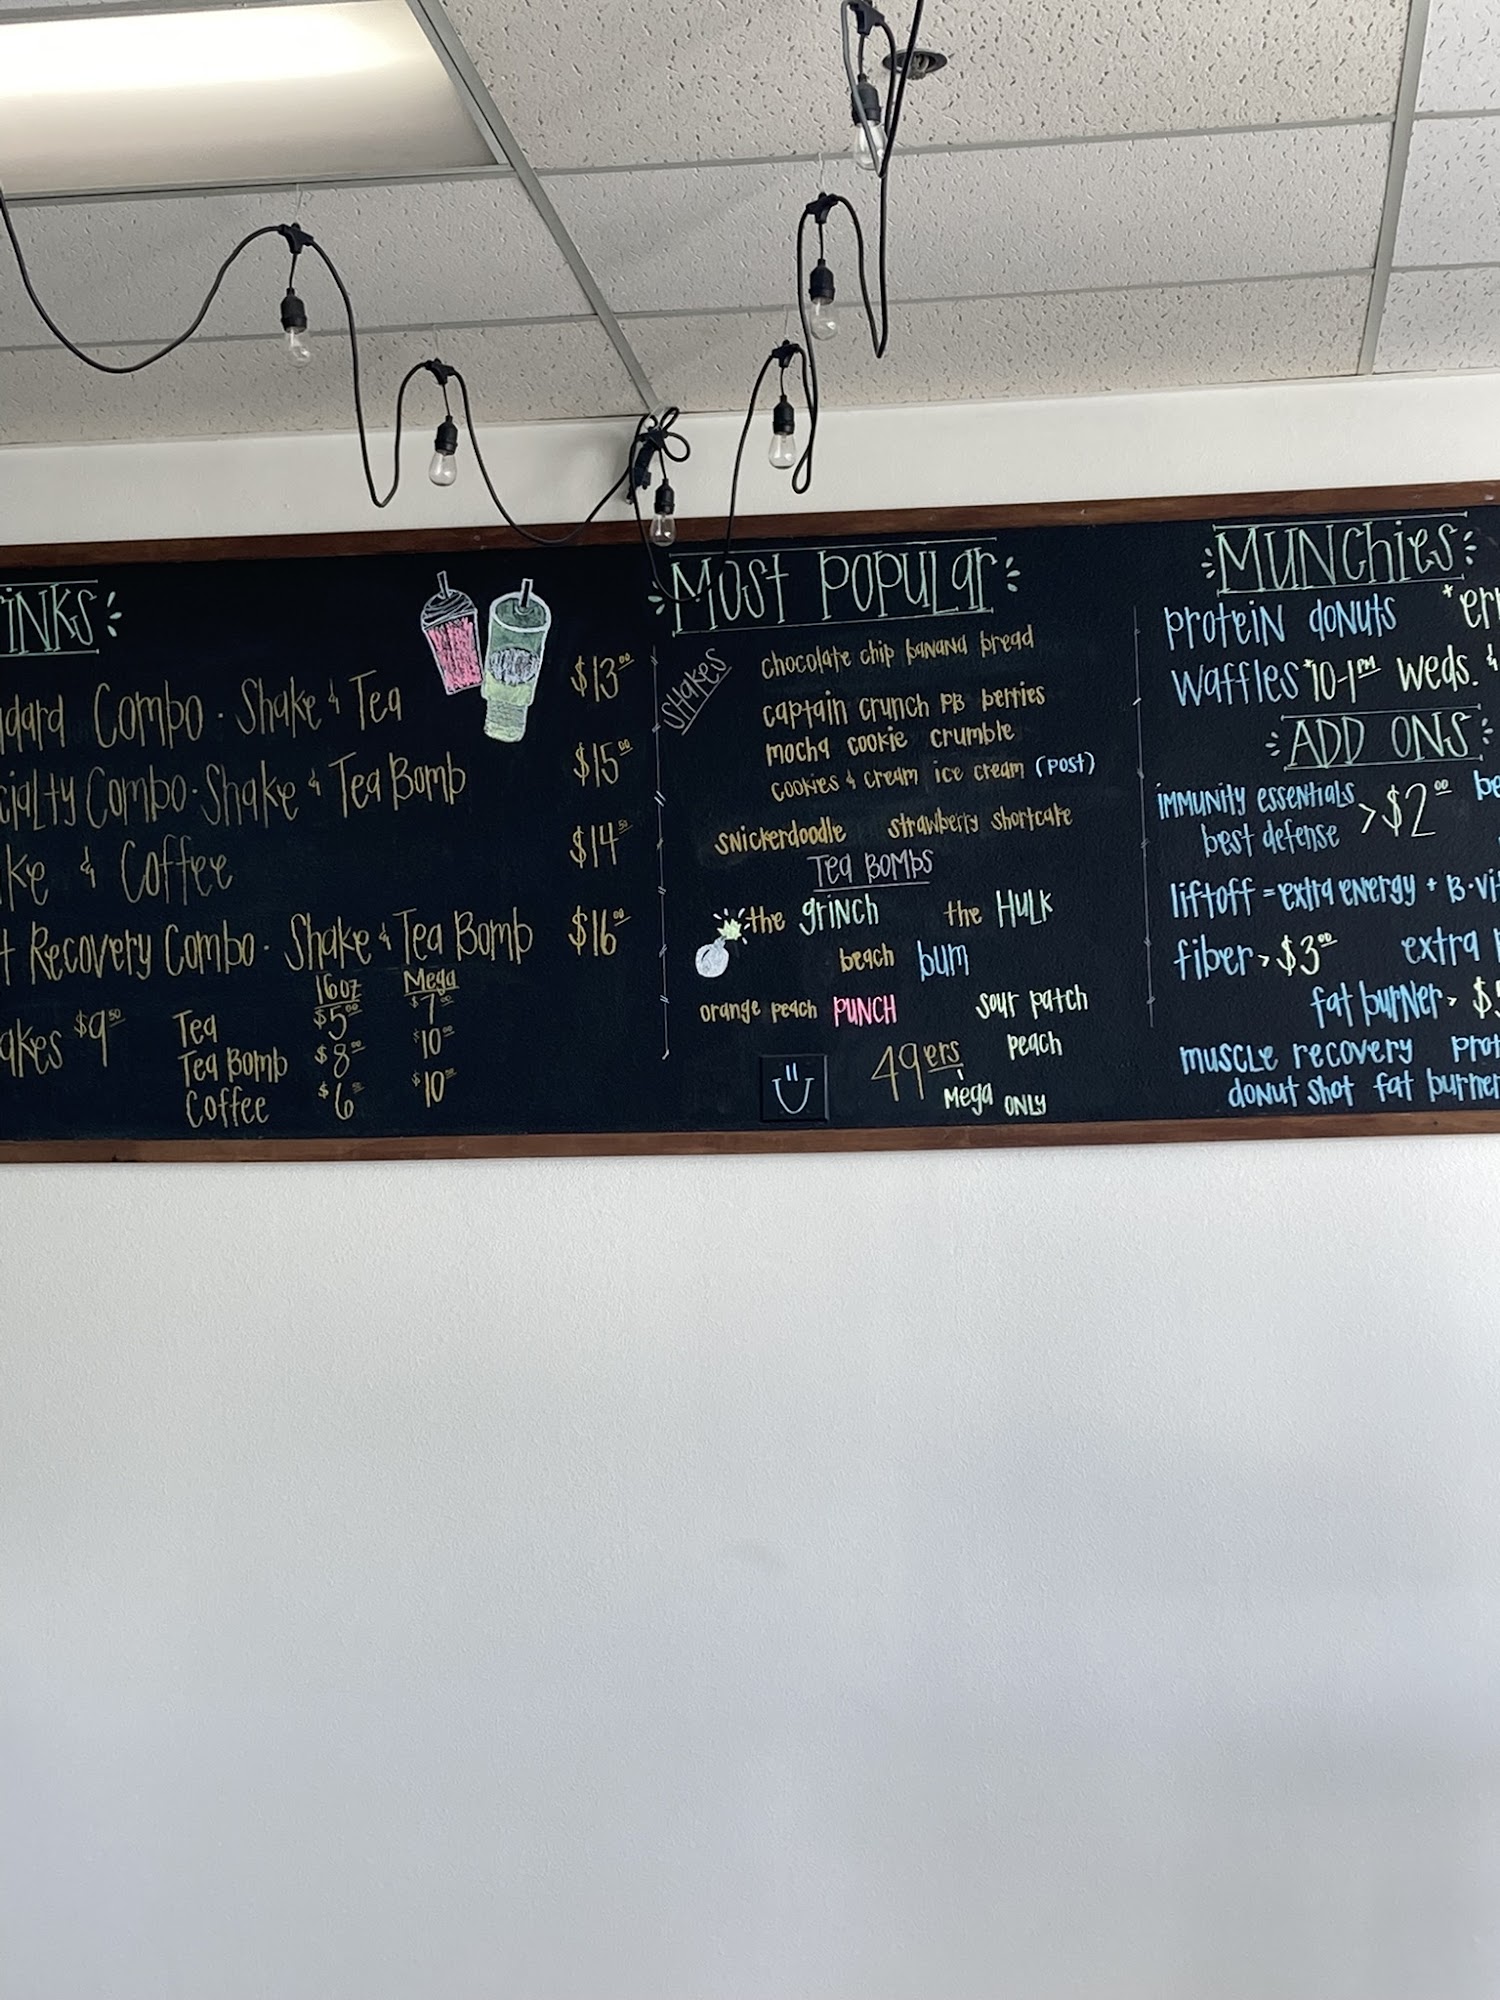 INKS
dard Combo · Shake & Tea $13.00
cialty Combo · Shake & Tea Bomb $15.00
ke & Coffee $14.50
t Recovery Combo · Shake & Tea Bomb $16.00
16oz Mega
akes $9.50
Tea $5.00 $7.00
Tea Bomb $8.00 $10.00
Coffee $6
$10
Most Popular
SHAKES
chocolate chip banana bread
captain crunch PB berries
mocha cookie crumble
cookies & cream ice cream (post)
snickerdoodle strawberry shortcake
Tea Bombs
the grinch the HULK
beach bum
orange peach PUNCH sour patch
peach
49ers
Mega ONLY
MUNCHIES
protein donuts
waffles *10-1PM Weds. &
ADD ONS
immunity essentials
best defense > $2.00
liftoff = extra energy + B-vit
fiber > $3.00 extra
fat burner > $
muscle recovery
donut shot fat burner